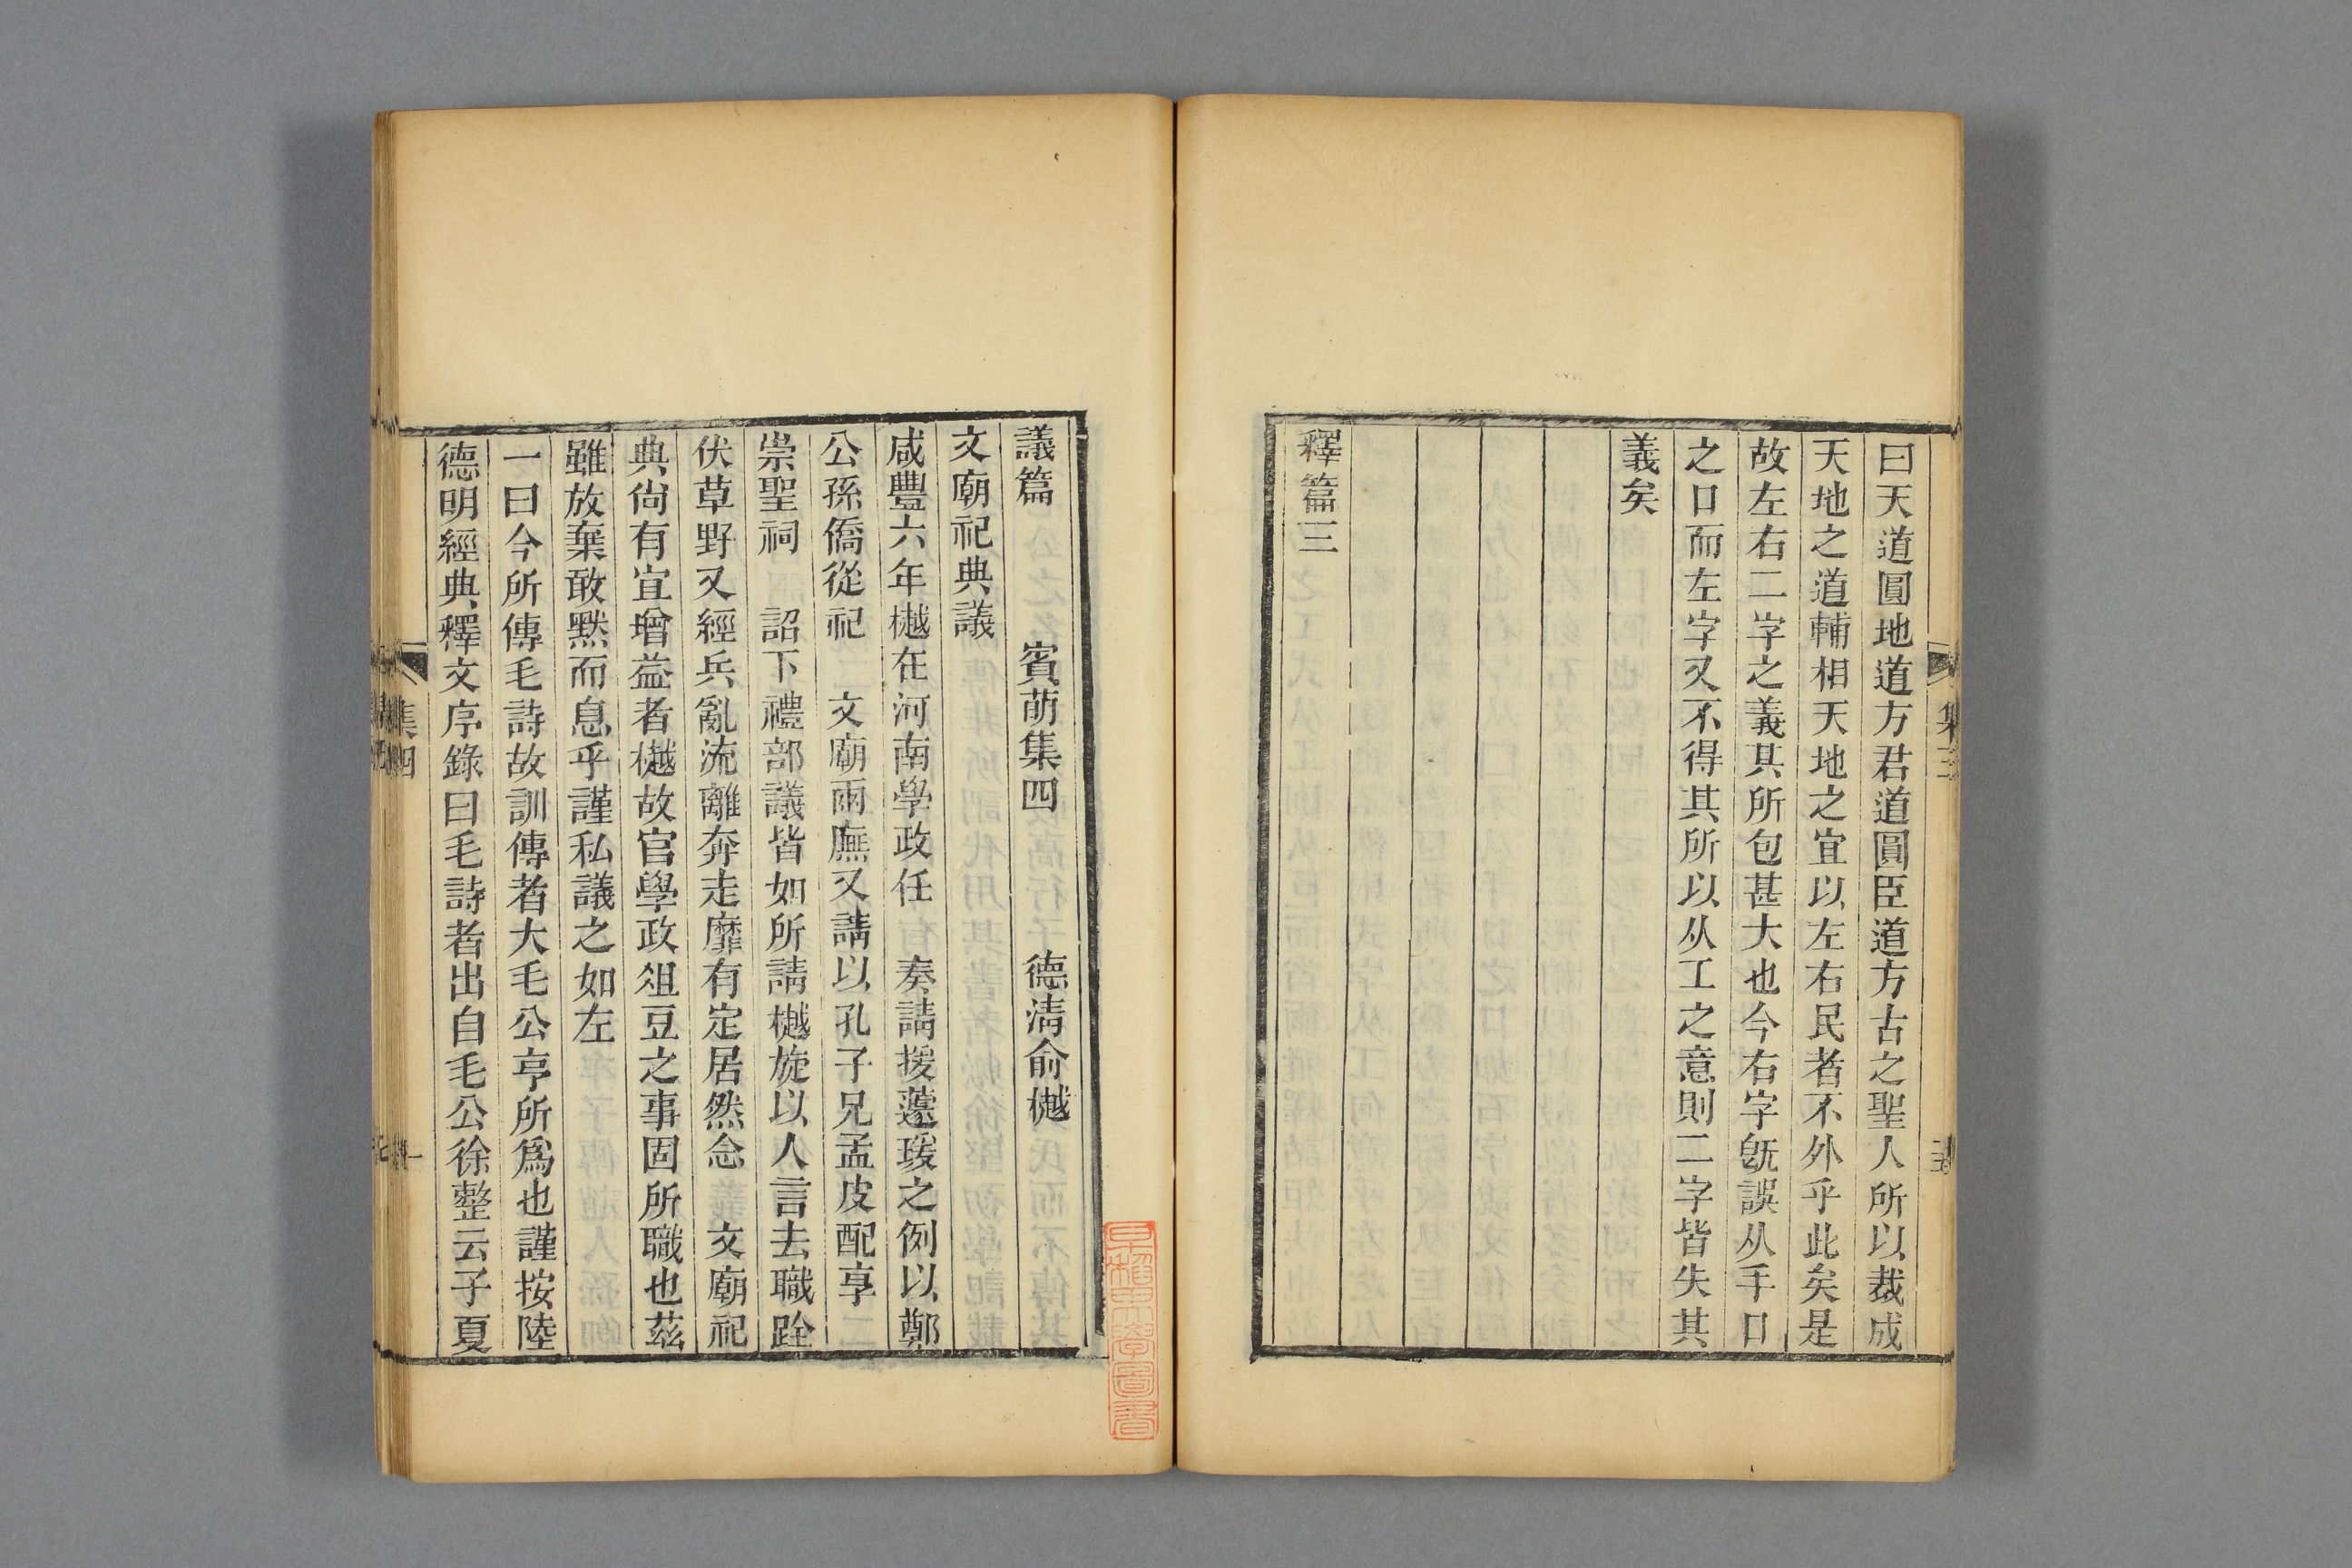 曰天道圓地道方君道圓臣道方古之聖人所以裁成
天地之道輔相天地之宜以左右民者不外乎此矣是
故左右二字之義其所包甚大也今右字旣誤从手口
之口而左字又不得其所以从工之意則二字皆失其
義矣
釋篇三
議篇 賓萌集四 德淸俞樾
文廟祀典議
咸豐六年樾在河南學政任 奏請援蘧瑗之例以鄭
公孫僑從祀 文廟兩廡又請以孔子兄孟皮配享
崇聖祠 詔下禮部議皆如所請樾旋以人言去職跧
伏草野又經兵亂流離奔走靡有定居然念 文廟祀
典尚有宜增益者樾故官學政俎豆之事固所職也茲
雖放棄敢默而息乎謹私議之如左
一曰今所傳毛詩故訓傳者大毛公亨所爲也謹按陸
德明經典釋文序錄曰毛詩者出自毛公徐整云子夏
集四
一